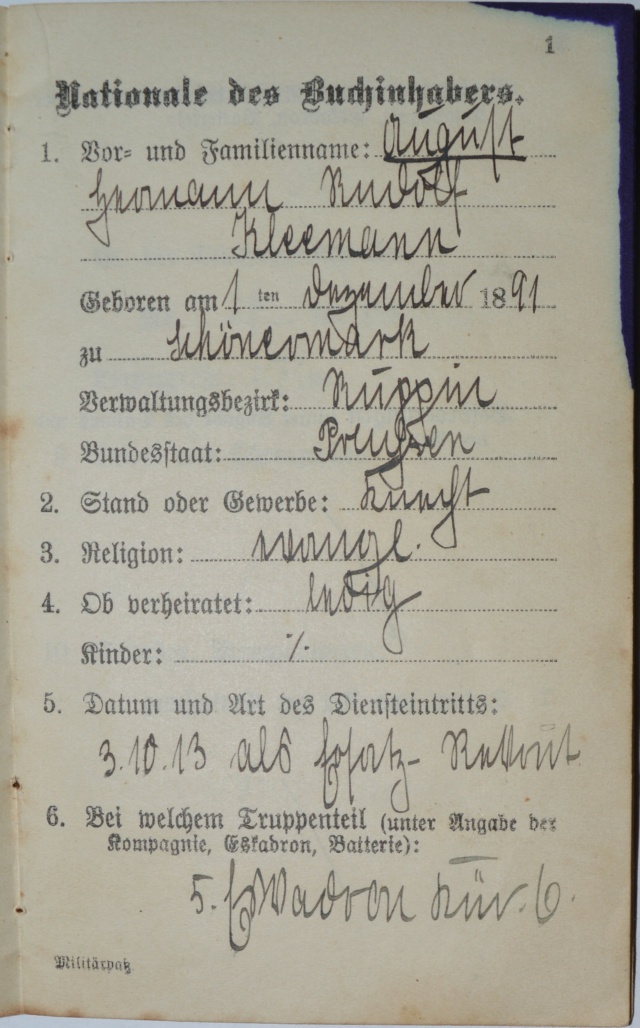 1
Nationale des Buchinhabers.
1. Vor- und Familienname: August
Hermann Rudolf
Kleemann
Geboren am 1 ten Dezember 1891
zu Schönermark
Verwaltungsbezirk: Ruppin
Bundesstaat: Preußen
2. Stand oder Gewerbe: Knecht
3. Religion: evangl.
4. Ob verheiratet: ledig
Kinder: ·/.
5. Datum und Art des Diensteintritts:
3.10.13 als Ersatz-Rekrut
6. Bei welchem Truppenteil (unter Angabe der
Kompagnie, Eskadron, Batterie):
5. Eskadron Kür. 6.
Militärpaß